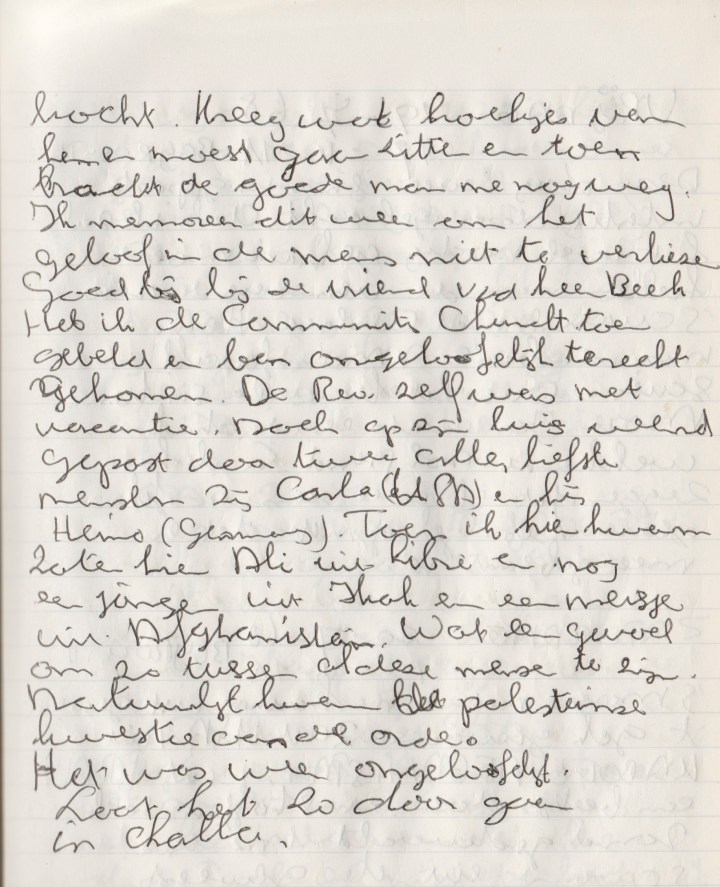 bracht. Kreeg wat koekjes van
hem en moest gaan zitte en toen
bracht de goede man me nog weg.
Ik memoreer dit weer om het
geloof in de mens niet te verlieze
Goed bij de vriend v.d. heer Beek
Heb ik de Community Church toen
gebeld en ben ongelooflijk terecht
gekomen. De Rev. zelf was met
vacantie. Doch op zijn huis werd
gepast door twee aller liefste
mensen zij Carla (USA) en hij
Heino (Germany). Toen ik hier kwam
zate hier Ali uit Libië en nog
een jongen uit Irak en een meisje
uit Afghanistan. Wat een gevoel
om zo tusse al deze mense te zijn.
Natuurlijk kwam de palesteinse
kwestie aan de orde.
Het was weer ongelooflijk.
Laat het zo door gaan
in challa.